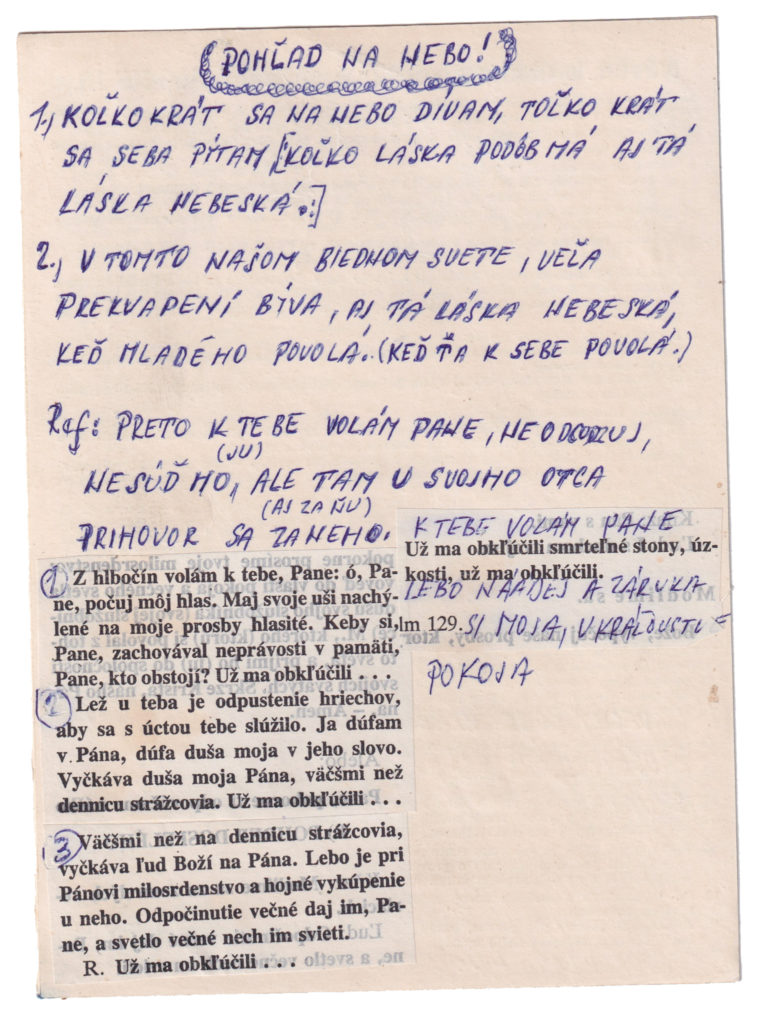 POHĽAD NA NEBO!
1., KOĽKOKRÁT SA NA NEBO DÍVAM, TOĽKO KRÁT
SA SEBA PÍTAM [KOĽKO LÁSKA PODÔB MÁ AJ TÁ
LÁSKA NEBESKÁ.!]
2., V TOMTO NAŠOM BIEDNOM SVETE, VEĽA
PREKVAPENÍ BÍVA, AJ TÁ LÁSKA NEBESKÁ,
KEĎ MLADÉHO POVOLÁ. (KEĎ ŤA K SEBE POVOLÁ.)
Ref: PRETO K TEBE VOLÁM PANE, NEODSUDZUJ,
(JU)
NESÚĎ HO, ALE TAM U SVOJHO OTCA
(AJ ZA ŇU)
PRIHOVOR SA ZA NEHO.
1 Z hlbočín volám k tebe, Pane: ó, Pa-
ne, počuj môj hlas. Maj svoje uši nachý-
lené na moje prosby hlasité. Keby si,
Pane, zachovával neprávosti v pamäti,
Pane, kto obstojí? Už ma obkľúčili . . .
2 Lež u teba je odpustenie hriechov,
aby sa s úctou tebe slúžilo. Ja dúfam
v Pána, dúfa duša moja v jeho slovo.
Vyčkáva duša moja Pána, väčšmi než
dennicu strážcovia. Už ma obkľúčili . . .
3 Väčšmi než na dennicu strážcovia,
vyčkáva ľud Boží na Pána. Lebo je pri
Pánovi milosrdenstvo a hojné vykúpenie
u neho. Odpočinutie večné daj im, Pa-
ne, a svetlo večné nech im svieti.
R. Už ma obkľúčili . . .
K TEBE VOLÁM PANE
Už ma obkľúčili smrteľné stony, úz-
kosti, už ma obkľúčili.
LEBO NÁDEJ A ZÁRUKA
lm 129. SI MOJA, V KRÁĽOVSTV=
POKOJA